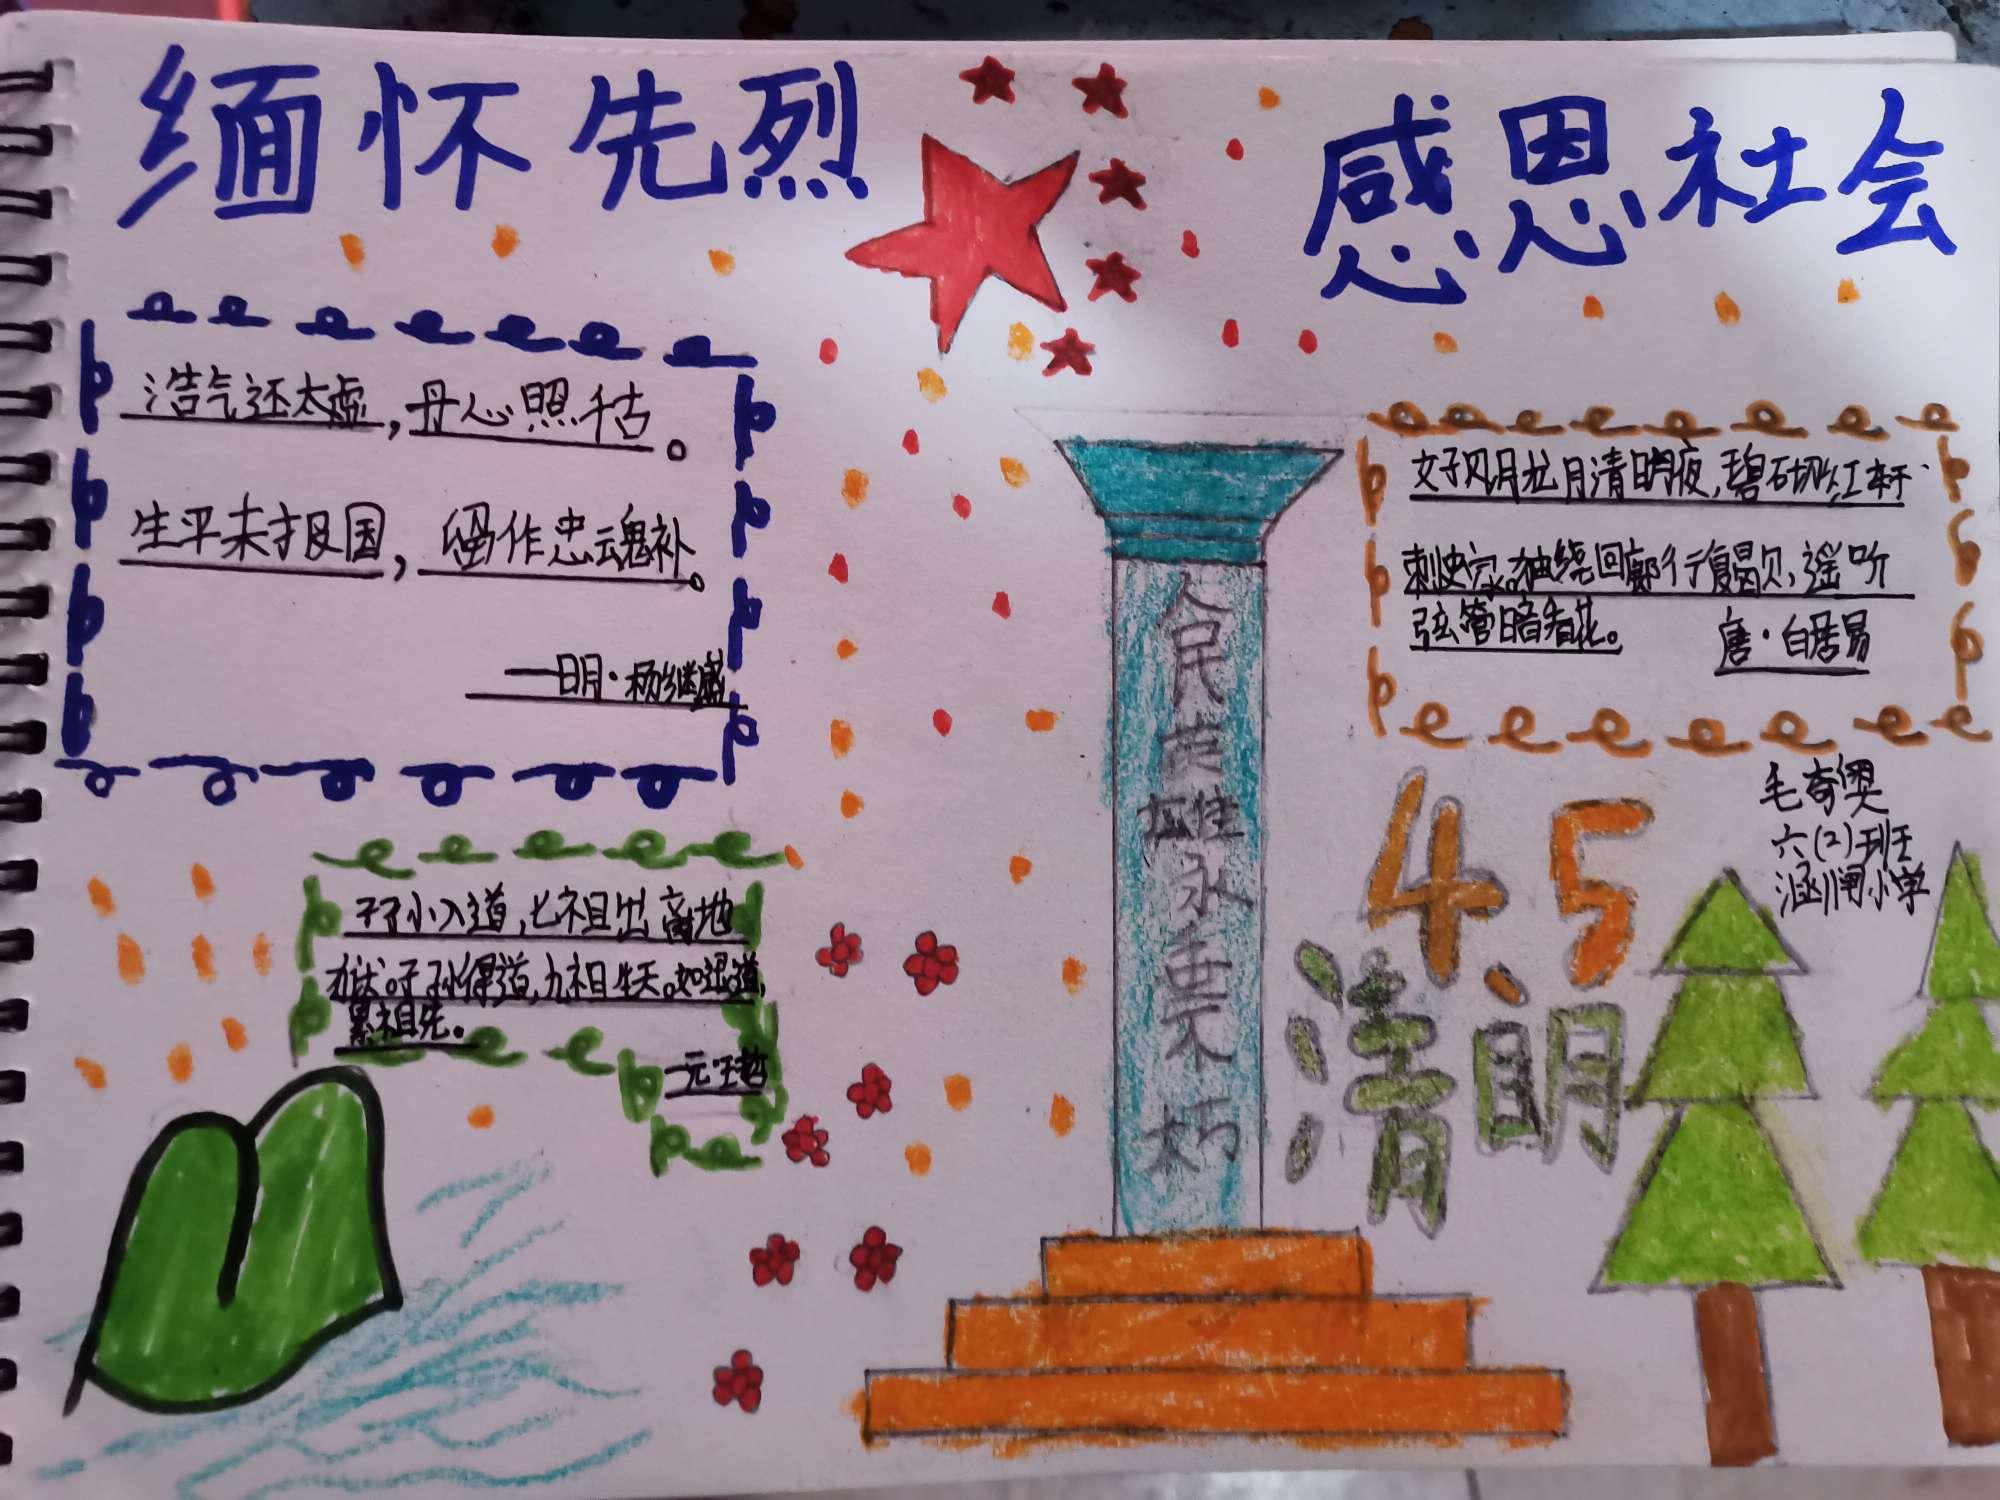 缅怀先烈
感恩社会
浩气还太虚,丹心照千古。
生平未报国,留作忠魂补。
一明·杨继盛
好风月龙月清明夜,碧砌红轩
刺史家。独绕回廊行复歇,遥听
弦管暗看花。
唐·白居易
毛奇
六(2)班
涵闸小学
子小入道,七祖出离地
狱。子孙得道,九祖生天。如退道,
累祖先。
一元·王喆
人民英雄永垂不朽
4、5
清明